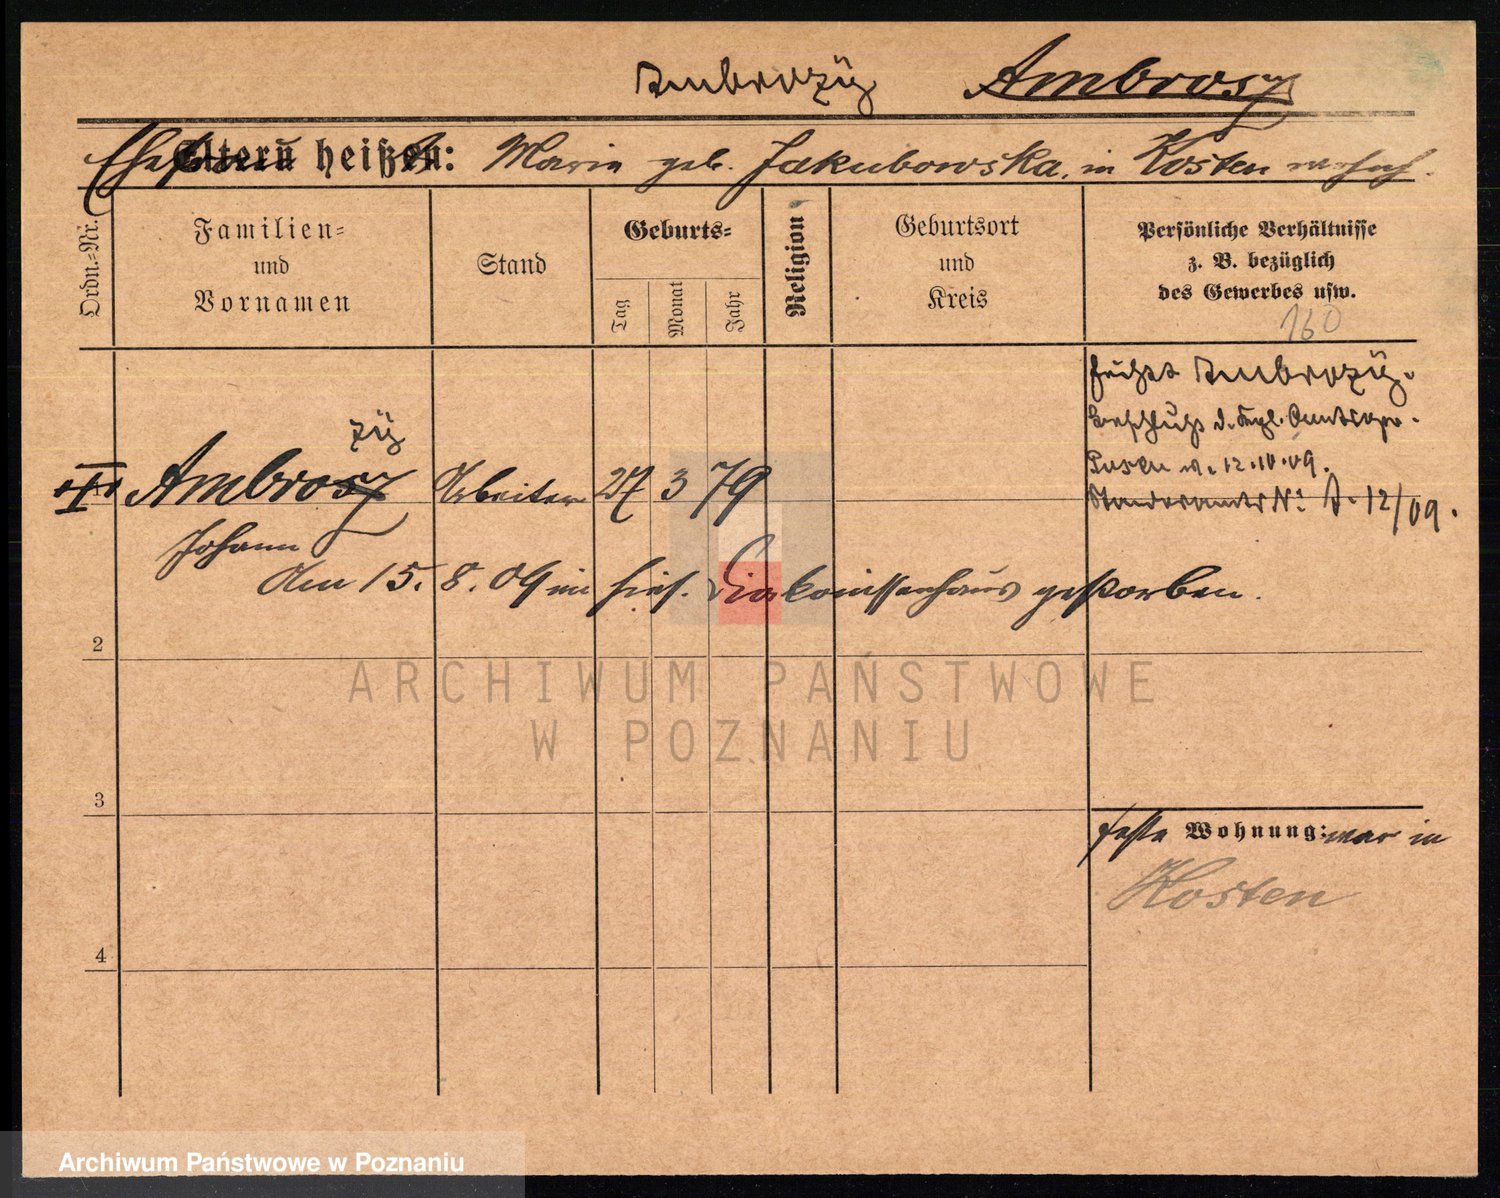 Ambrozÿ Ambrosz
Eltern heißen: Marie geb. Jakubowska, in Kosten wohnh.
Ordn.-Nr.
Familien-
und
Vornamen
Stand
Geburts-
Tag
Monat
Jahr
Religion
Geburtsort
und
Kreis
Persönliche Verhältnisse
z. B. bezüglich
des Gewerbes usw.
160
heißt Ambrozÿ.
Beschluß d. Kgl. Amtsger.
Posen v. 12.10.09.
Standesamts Nº A. 12/09.
zÿ
Ambrosz Arbeiter 27 3 79
Johann
den 15. 8. 09 im hies. Diakonissenhaus gestorben.
2
3
4
feste Wohnung: war in
Kosten
ARCHIWUM PAŃSTWOWE
W POZNANIU
Archiwum Państwowe w Poznaniu